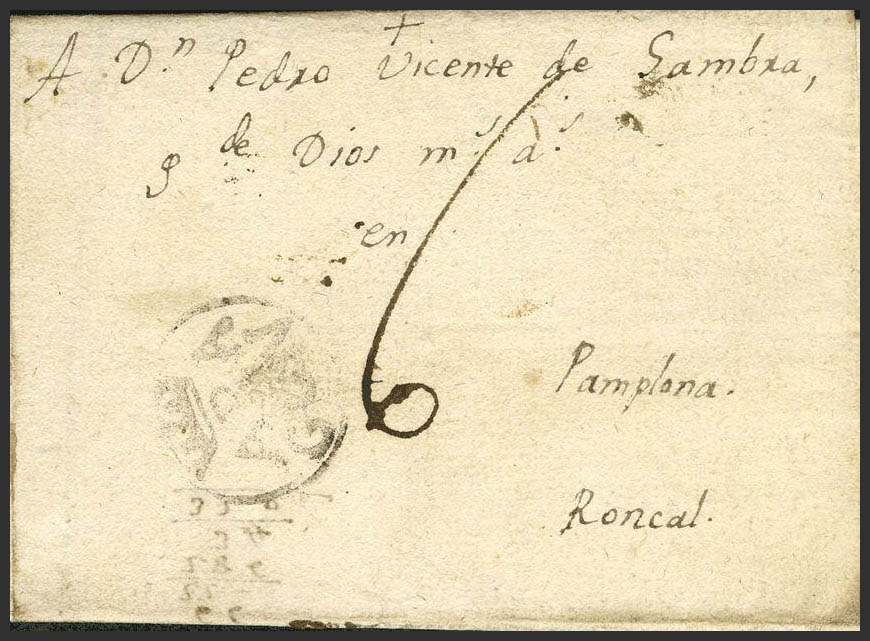 +
A D.n Pedro Vicente de Gambra,
g de Dios m.s a.s
en
6
Pamplona.
Roncal.